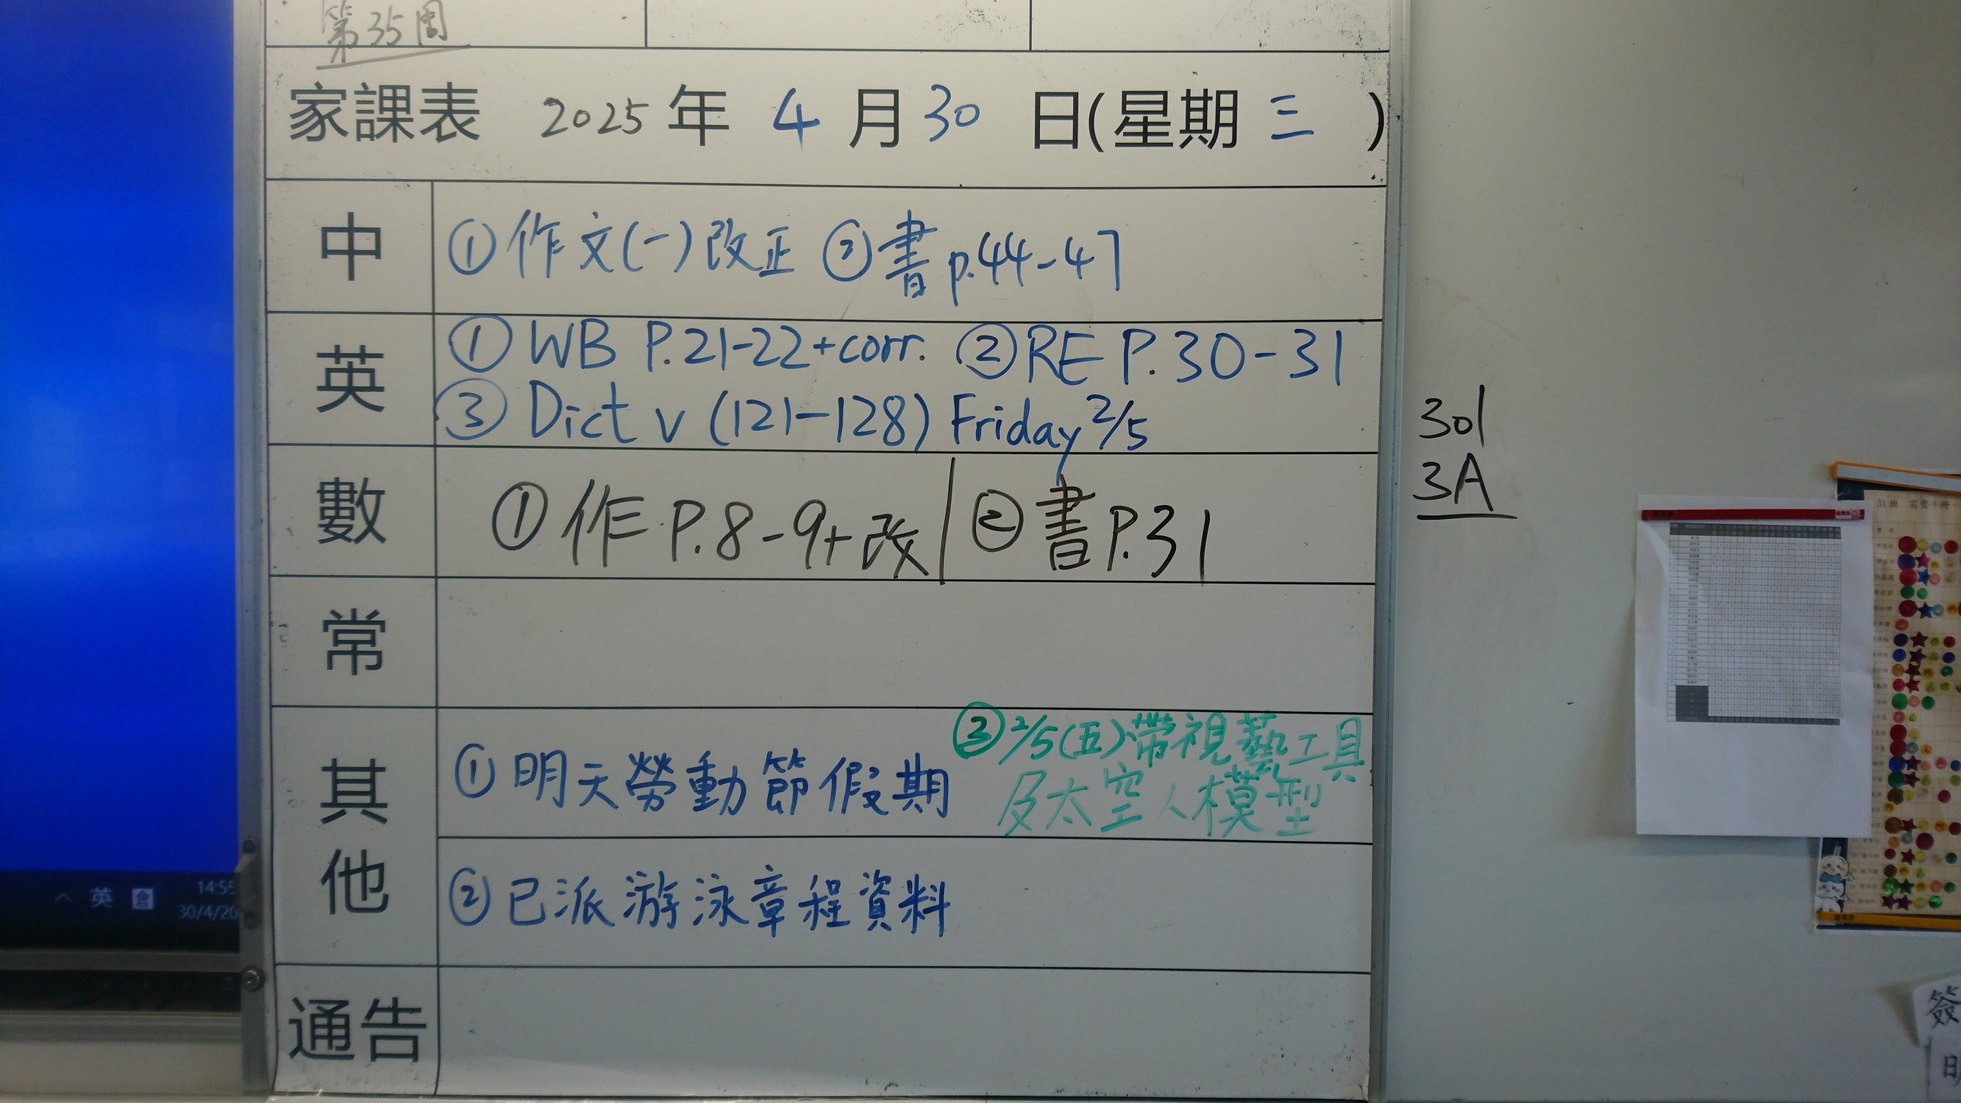 第35周
家課表 2025年 4月30日(星期三)
中
①作文(一)改正 ②書p.44-47
英
①WB P.21-22+corr. ②RE P.30-31
③Dict v (121-128) Friday 2/5
數
①作P.8-9+改 | ②書P.31
常
其他
①明天勞動節假期
③2/5(五)帶視藝工具
及太空人模型
②已派游泳章程資料
通告
301
3A
英
14:55
30/4/20
簽